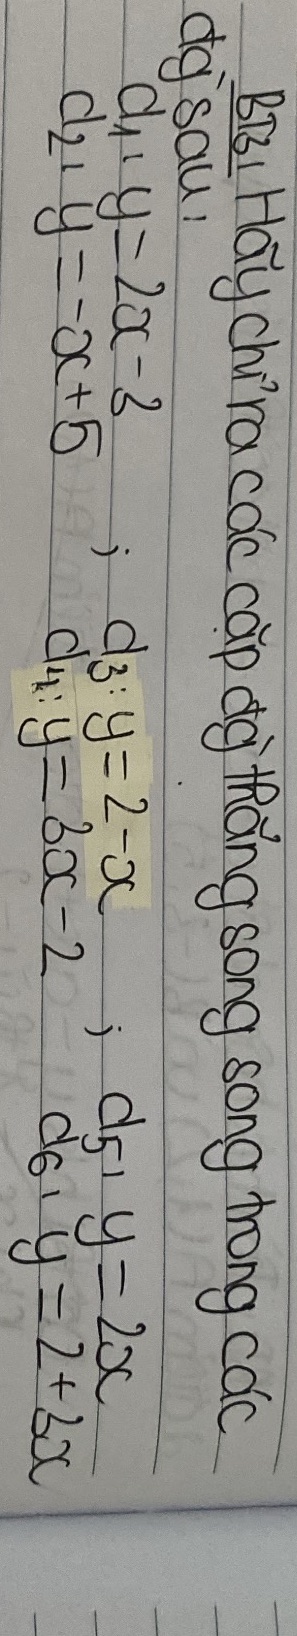 BT3: Hãy chỉ ra các cặp đg` thẳng song song trong các
đg` sau:
d1: y = 2x - 3 ; d3: y = 2 - x ; d5: y = 2x
d2: y = -x + 5 d4: y = 3x - 2 d6: y = 2 + 3x